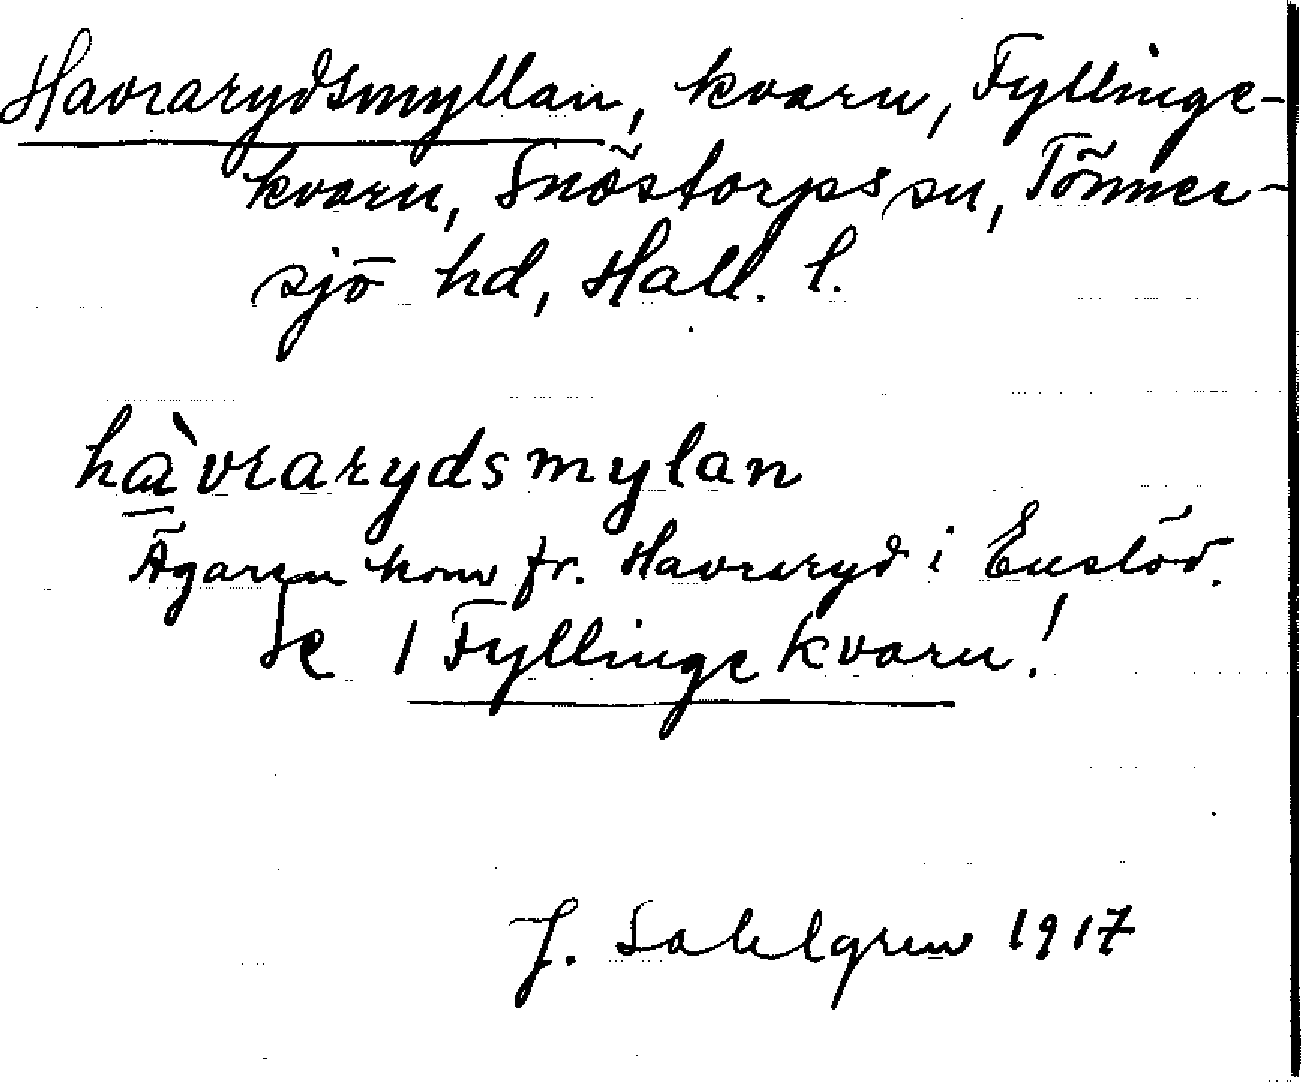 Havrarydsmyllan, kvarn, Fyllinge-
kvarn, Snöstorps sn, Tönner-
sjö hd, Hall. l.
hàvrarydsmylan
Ägaren kom fr. Havraryd i Enslöv.
Se 1 Fyllinge kvarn!
J. Sahlgren 1917